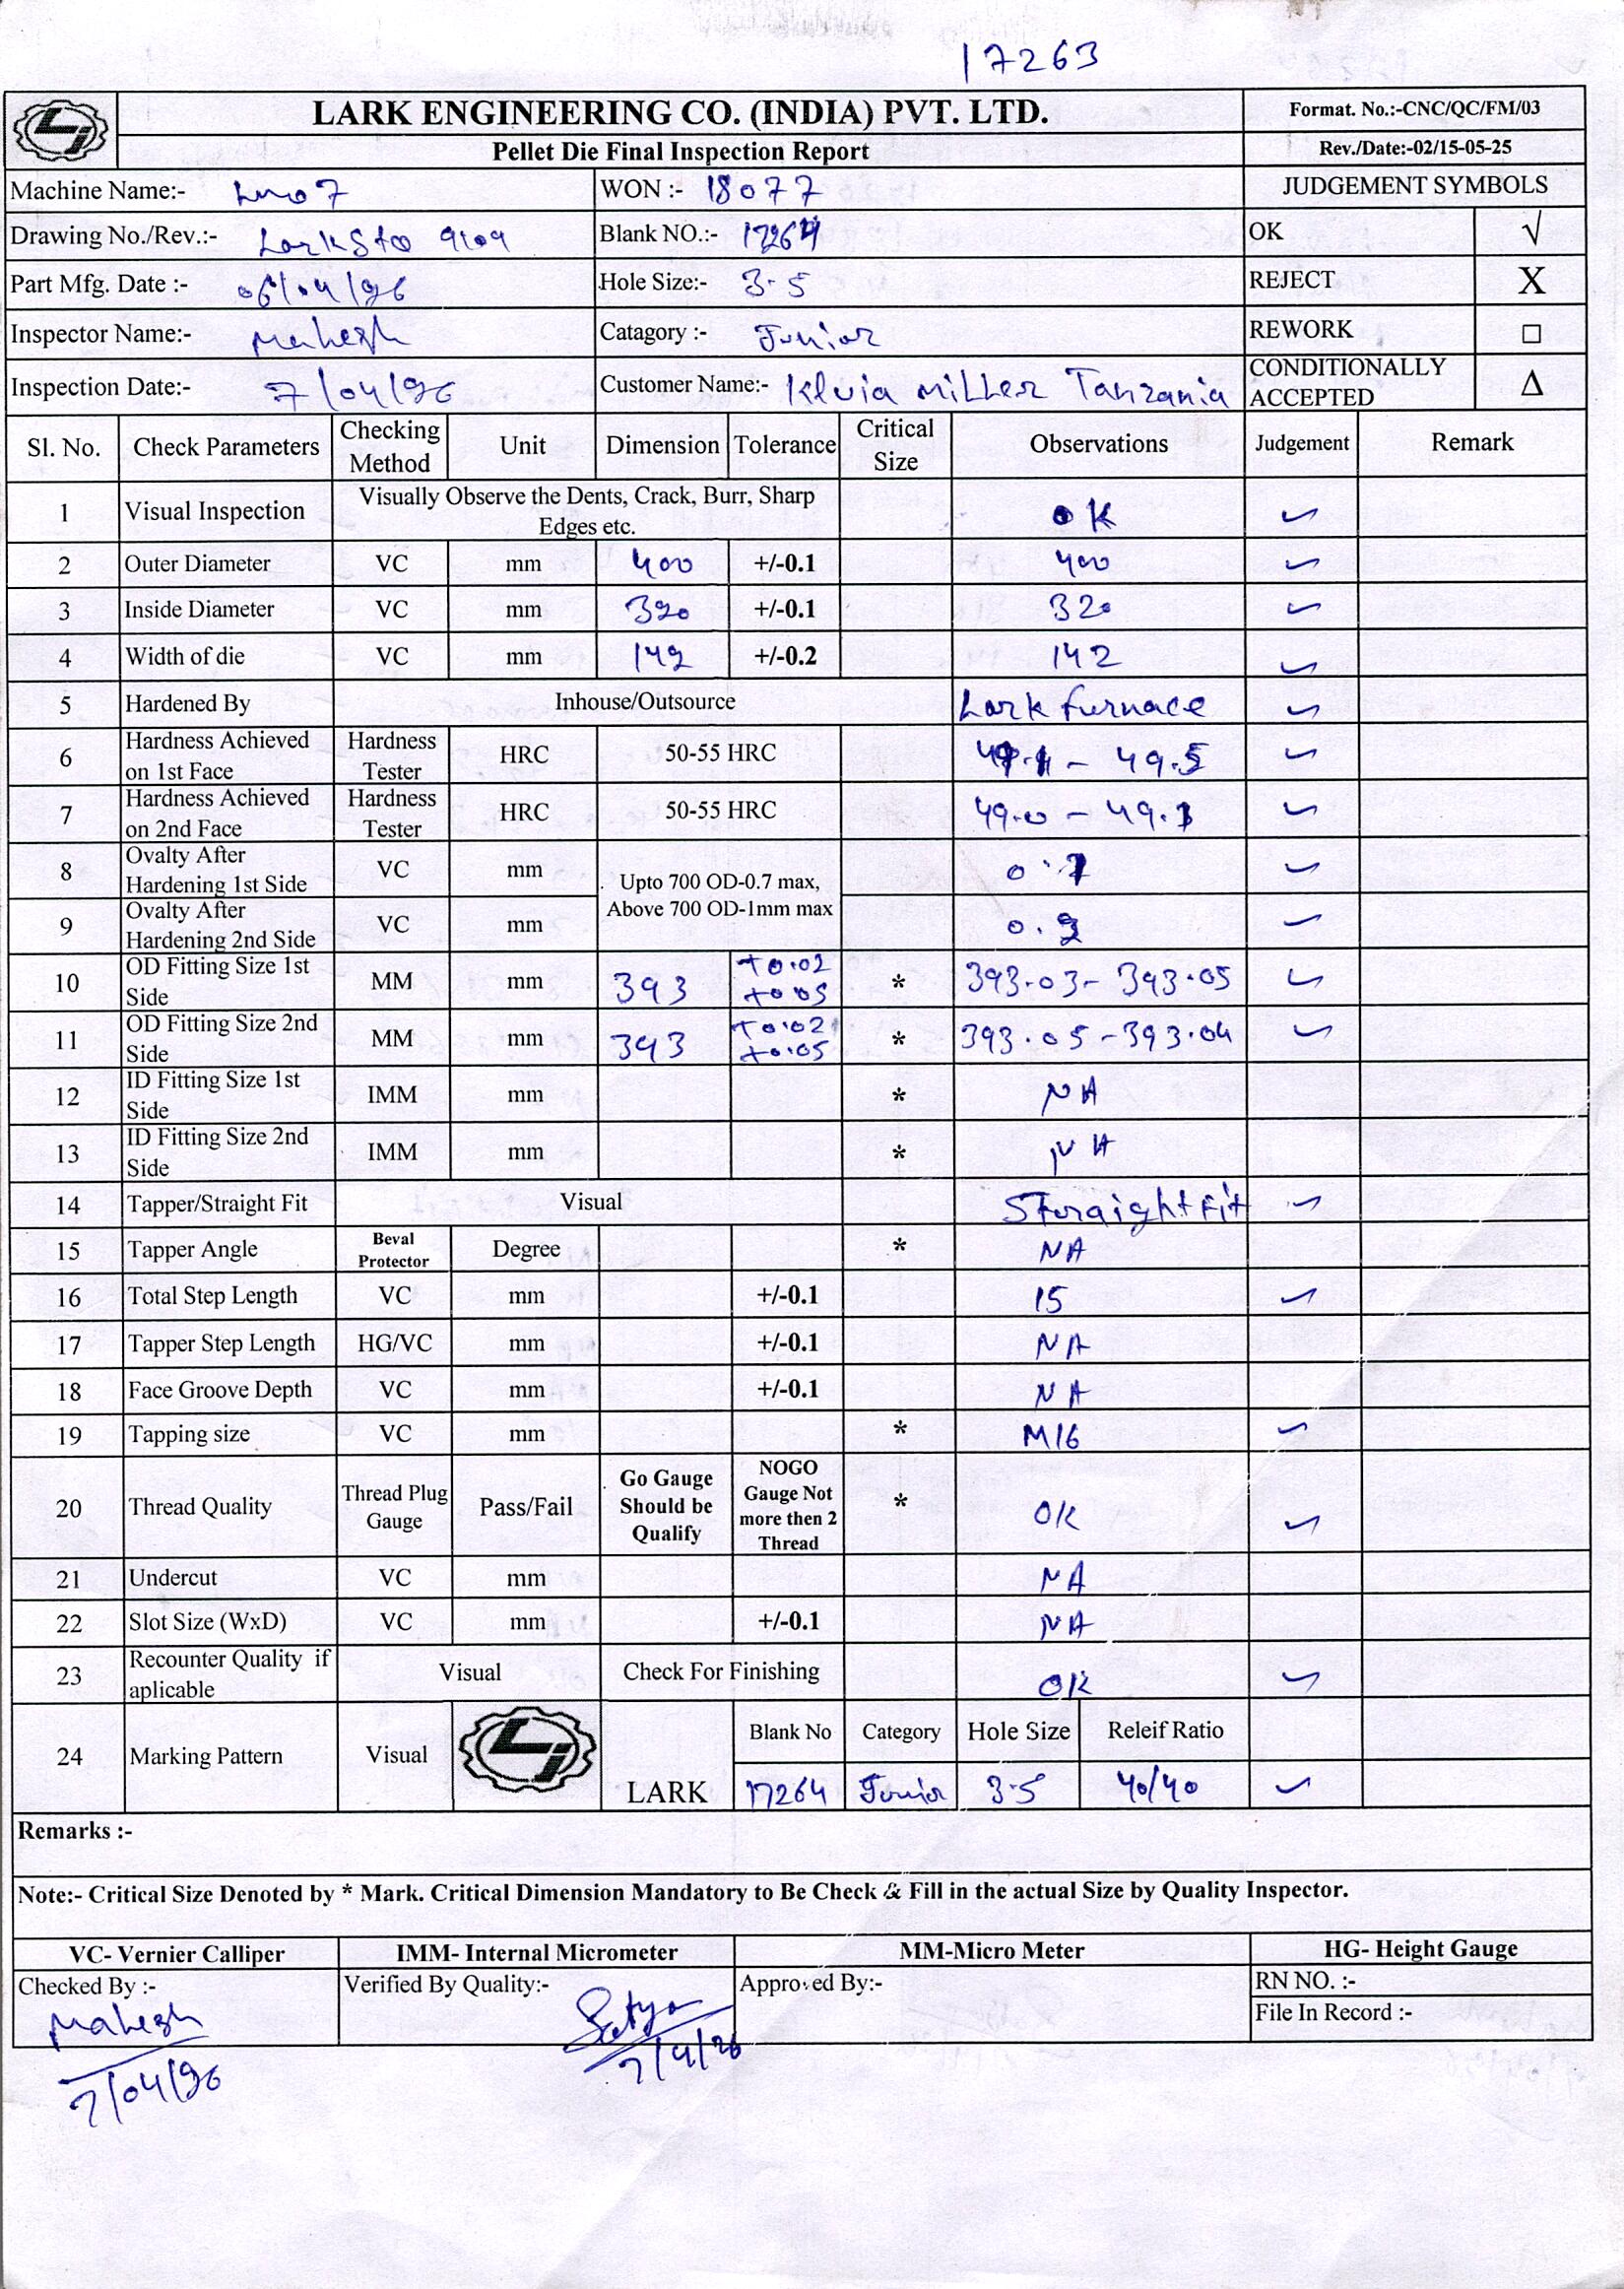 17263
LARK ENGINEERING CO. (INDIA) PVT. LTD.
Format. No.:-CNC/QC/FM/03
Pellet Die Final Inspection Report
Rev./Date:-02/15-05-25
Machine Name:- Lm07
WON :- 18077
JUDGEMENT SYMBOLS
Drawing No./Rev.:-
Blank NO.:- 17264
OK √
Part Mfg. Date :- 06/04/26
Hole Size:- 3.5
REJECT X
Inspector Name:- Mahesh
Catagory :- Junior
REWORK □
Inspection Date:- 7/04/26
Customer Name:- Miller Tanzania
CONDITIONALLY ACCEPTED Δ
Sl. No. Check Parameters Checking Method Unit Dimension Tolerance Critical Size Observations Judgement Remark
1 Visual Inspection Visually Observe the Dents, Crack, Burr, Sharp Edges etc. OK ✓
2 Outer Diameter VC mm 400 +/-0.1 400 ✓
3 Inside Diameter VC mm 320 +/-0.1 320 ✓
4 Width of die VC mm 142 +/-0.2 142 ✓
5 Hardened By Inhouse/Outsource Lark furnace ✓
6 Hardness Achieved on 1st Face Hardness Tester HRC 50-55 HRC - 49.5 ✓
7 Hardness Achieved on 2nd Face Hardness Tester HRC 50-55 HRC 49.0 - ✓
8 Ovalty After Hardening 1st Side VC mm Upto 700 OD-0.7 max, Above 700 OD-1mm max ✓
9 Ovalty After Hardening 2nd Side VC mm ✓
10 OD Fitting Size 1st Side MM mm 393 +0.02 +0.05 * 393.03- 393.05 ✓
11 OD Fitting Size 2nd Side MM mm 393 +0.02 +0.05 * 393.05-393.04 ✓
12 ID Fitting Size 1st Side IMM mm * NA
13 ID Fitting Size 2nd Side IMM mm * NA
14 Tapper/Straight Fit Visual Straight Fit ✓
15 Tapper Angle Beval Protector Degree * NA
16 Total Step Length VC mm +/-0.1 15 ✓
17 Tapper Step Length HG/VC mm +/-0.1 NA
18 Face Groove Depth VC mm +/-0.1 NA
19 Tapping size VC mm * M16 ✓
20 Thread Quality Thread Plug Gauge Pass/Fail Go Gauge Should be Qualify NOGO Gauge Not more then 2 Thread * OK ✓
21 Undercut VC mm NA
22 Slot Size (WxD) VC mm +/-0.1 NA
23 Recounter Quality if aplicable Visual Check For Finishing OK ✓
24 Marking Pattern Visual LARK Blank No Category Hole Size Releif Ratio
17264 Junior 3.5 40/40 ✓
Remarks :-
Note:- Critical Size Denoted by * Mark. Critical Dimension Mandatory to Be Check & Fill in the actual Size by Quality Inspector.
VC- Vernier Calliper IMM- Internal Micrometer MM-Micro Meter HG- Height Gauge
Checked By :- Verified By Quality:- Approved By:- RN NO. :-
File In Record :-
Mahesh Satya
7/04/26 7/4/26